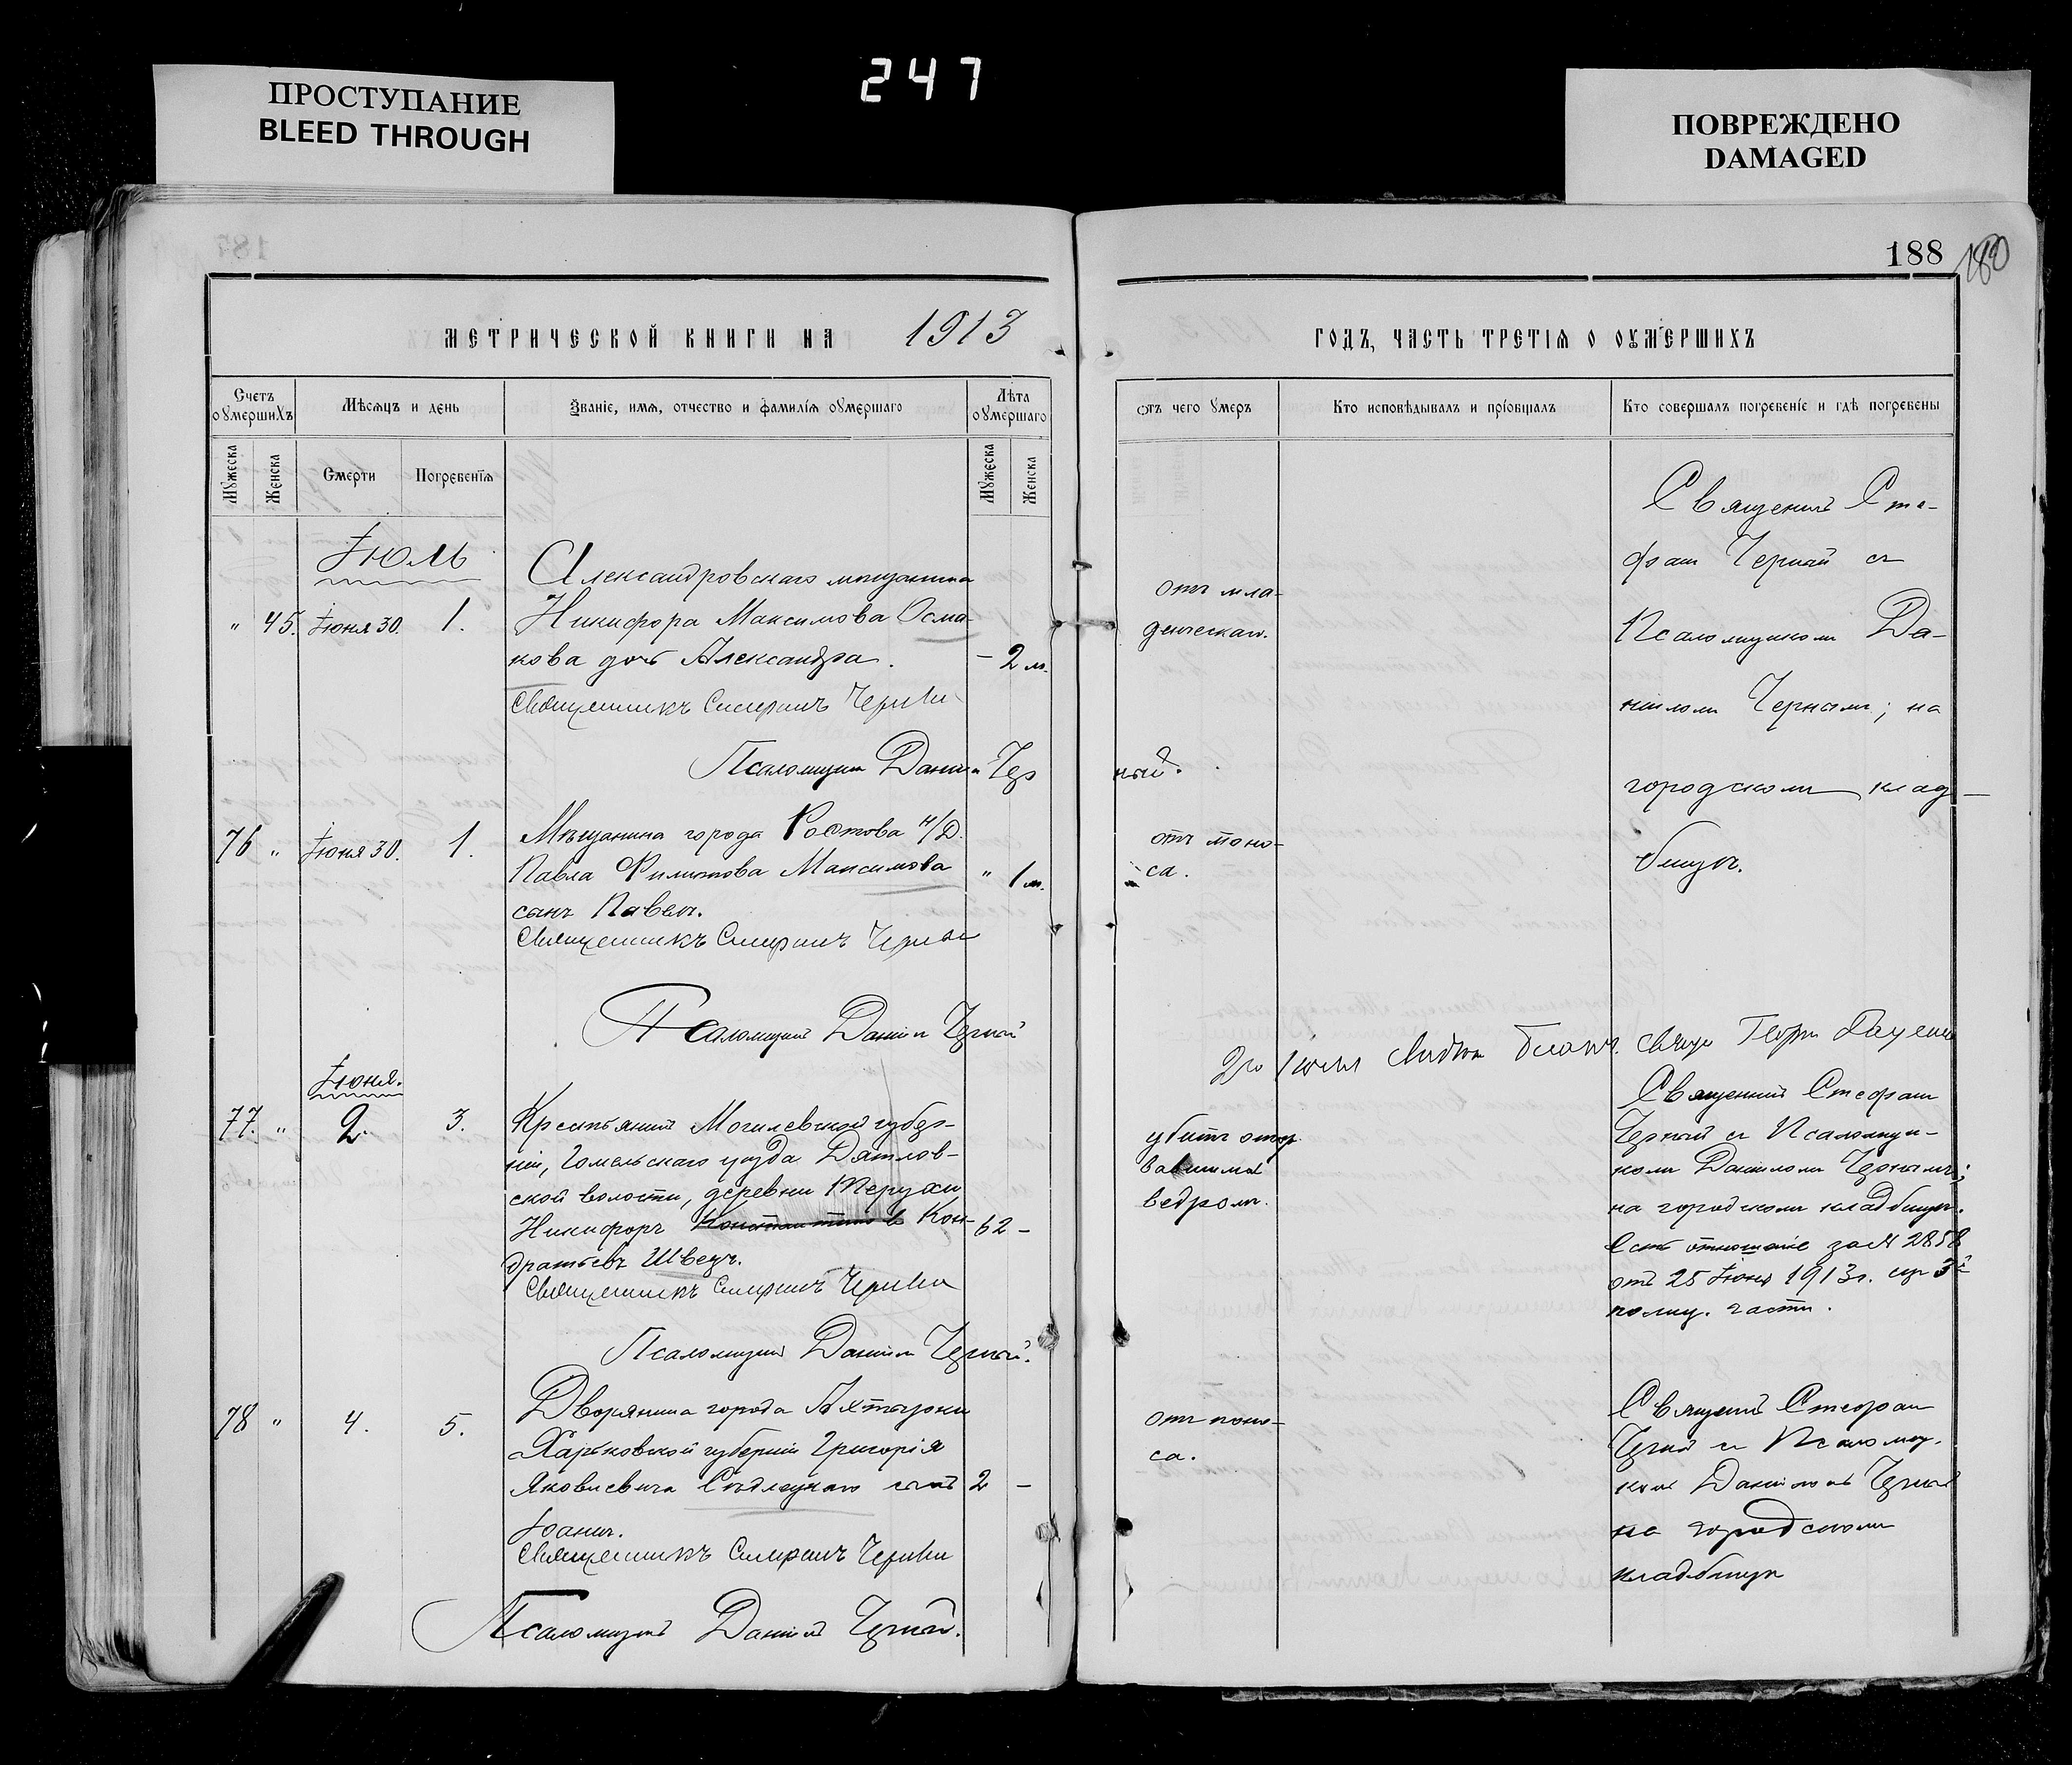 247
ПРОСТУПАНИЕ
BLEED THROUGH
ПОВРЕЖДЕНО
DAMAGED
188
180
МЕТРИЧЕСКОЙ КНИГИ НА 1913
ГОДЪ, ЧАСТЬ ТРЕТІѦ О ОУМЕРШИХЪ
Счетъ оумершихъ
Мѣсѧцъ и день
Званіе, имѧ, отчество и фамилїѧ оумершаго
Лѣта оумершаго
Ѿтъ чего умеръ
Кто исповѣдывалъ и пріобщалъ
Кто совершалъ погребеніе и гдѣ погребены
Мужеска
Женска
Смерти
Погребенїѧ
Мужеска
Женска
Іюль
" 45. Іюня 30. 1.
Александровскаго мѣщанина
Никифора Максимова Осма-
кова дочь Александра. - 2 м.
Священникъ Стефанъ Черный
Псаломщикъ Даніилъ Чер
ный.
отъ мла-
денческой.
Священникъ Сте-
фанъ Черный съ
Псаломщикомъ Да-
ніиломъ Чернымъ; на
городскомъ клад-
бищѣ.
76 " Іюня 30. 1.
Мѣщанина города Ростова н/Д.
Павла Филиппова Максимова " 1 м.
сынъ Павелъ.
Священникъ Стефанъ Черный
Псаломщикъ Даніилъ Черный
отъ поно-
са.
2го Іюля Георгій
Іюня.
77. " 2. 3.
Крестьянинъ Могилевской губер-
ніи, Гомельскаго уѣзда Дятлов-
ской волости, деревни
Никифоръ Константиновъ Кон- 62 -
дратьевъ Швецъ.
Священникъ Стефанъ Черный
Псаломщикъ Даніилъ Черный.
убитъ отор
вавшимся
ведромъ.
Священникъ Стефанъ
Черный съ Псаломщи-
комъ Даніиломъ Чернымъ;
на городскомъ кладбищѣ.
Есть отношеніе за № 2858
отъ 25 Іюня 1913 г. 3й
полиц. части.
78 " 4. 5.
Дворянина города Ахтырки
Харьковской губерніи Григорія
Яковлевича Сѣдлецкаго сынъ 2 -
Іоаннъ.
Священникъ Стефанъ Черный
Псаломщикъ Даніилъ Черный.
отъ поно-
са.
Священникъ Стефанъ
Черный съ Псаломщи-
комъ Даніиломъ Чернымъ
на городскомъ
кладбищѣ